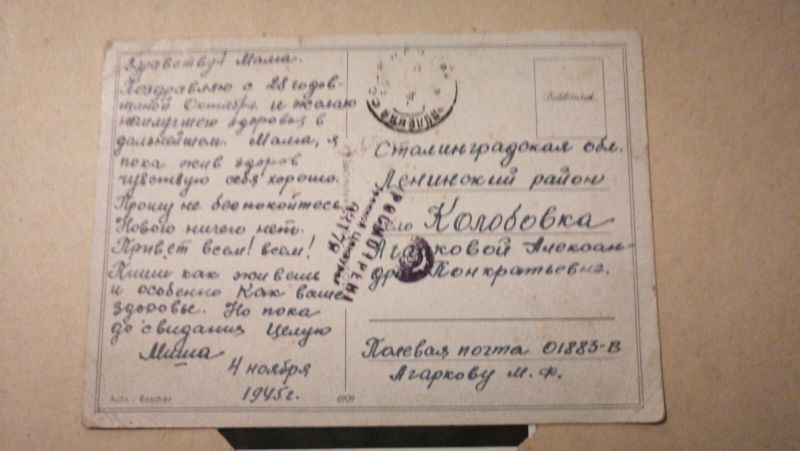 Здравствуй Мама.
Поздравляю с 28 годов-
щиной Октября и желаю
наилучшего здоровья в
дальнейшем. Мама, я
пока жив здоров
чувствую себя хорошо.
Прошу не беспокойтесь.
Нового ничего нет.
Привет всем! всем!
Пиши как живешь
и особенно как ваше
здоровье. Но пока
до свидания Целую
Миша
4 ноября
1945г.
Сталинградская обл.
Ленинский район
село Колобовка
Агарковой Алексан-
дре Понкратьевне.
Полевая почта 01883-В
Агаркову М. Ф.
ПРОСМОТРЕНО
Военной Цензурой
Auth. Roscher
6909